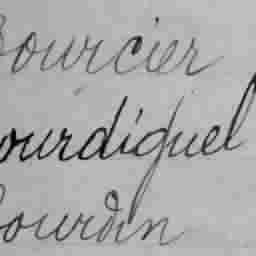 Bourcier
Bourdiguel
Bourdin